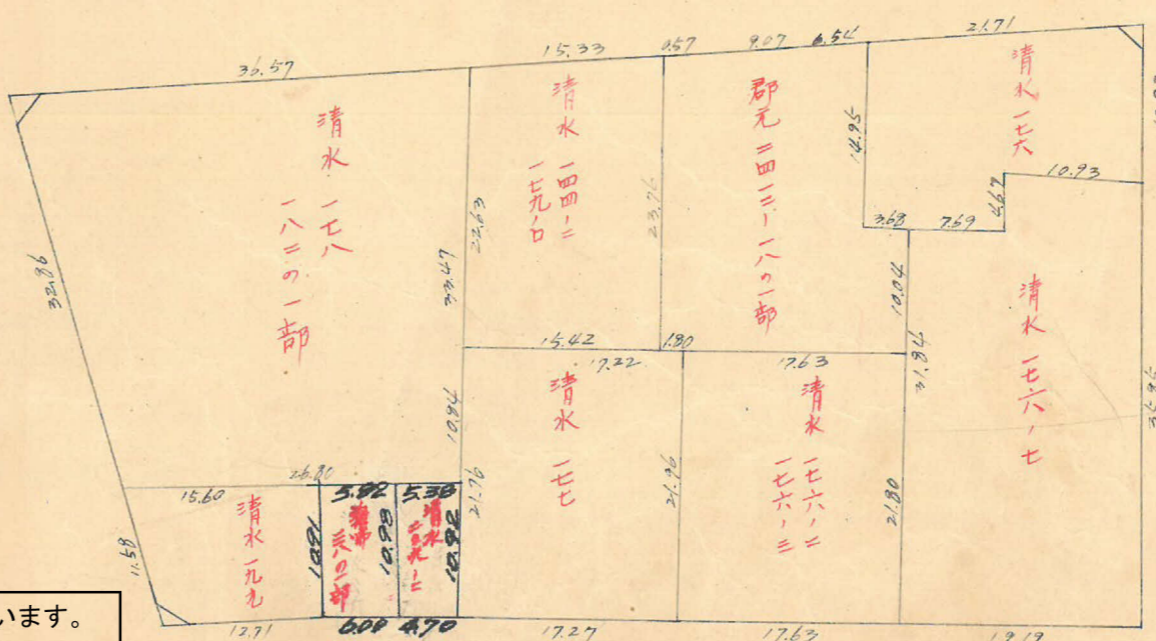 36.57
15.33
0.57
9.07
6.54
21.71
清水 一七八
一八二の一部
清水 一四四ノ二
一七九ノロ
郡元 二四一三ノ一八の一部
清水 一七六
14.95
10.93
4.67
3.68
7.69
22.63
23.76
32.86
33.47
10.04
15.42
1.80
17.22
17.63
31.84
清水 一七六ノ七
清水 一七七
清水 一七六ノ二
一七六ノ三
10.94
21.76
21.96
21.80
26.80
15.60
5.92
5.38
清水 一九九
清水
の一部
10.91
10.98
10.92
11.58
12.71
6.09
4.70
17.27
17.63
19.19
います。